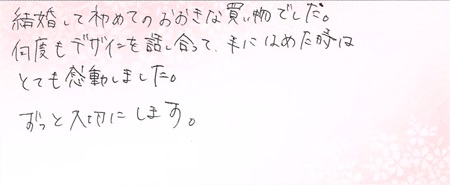 結婚して初めてのおおきな買い物でした。
何度もデザインを話し合って、手にはめた時は
とても感動しました。
ずっと大切にします。